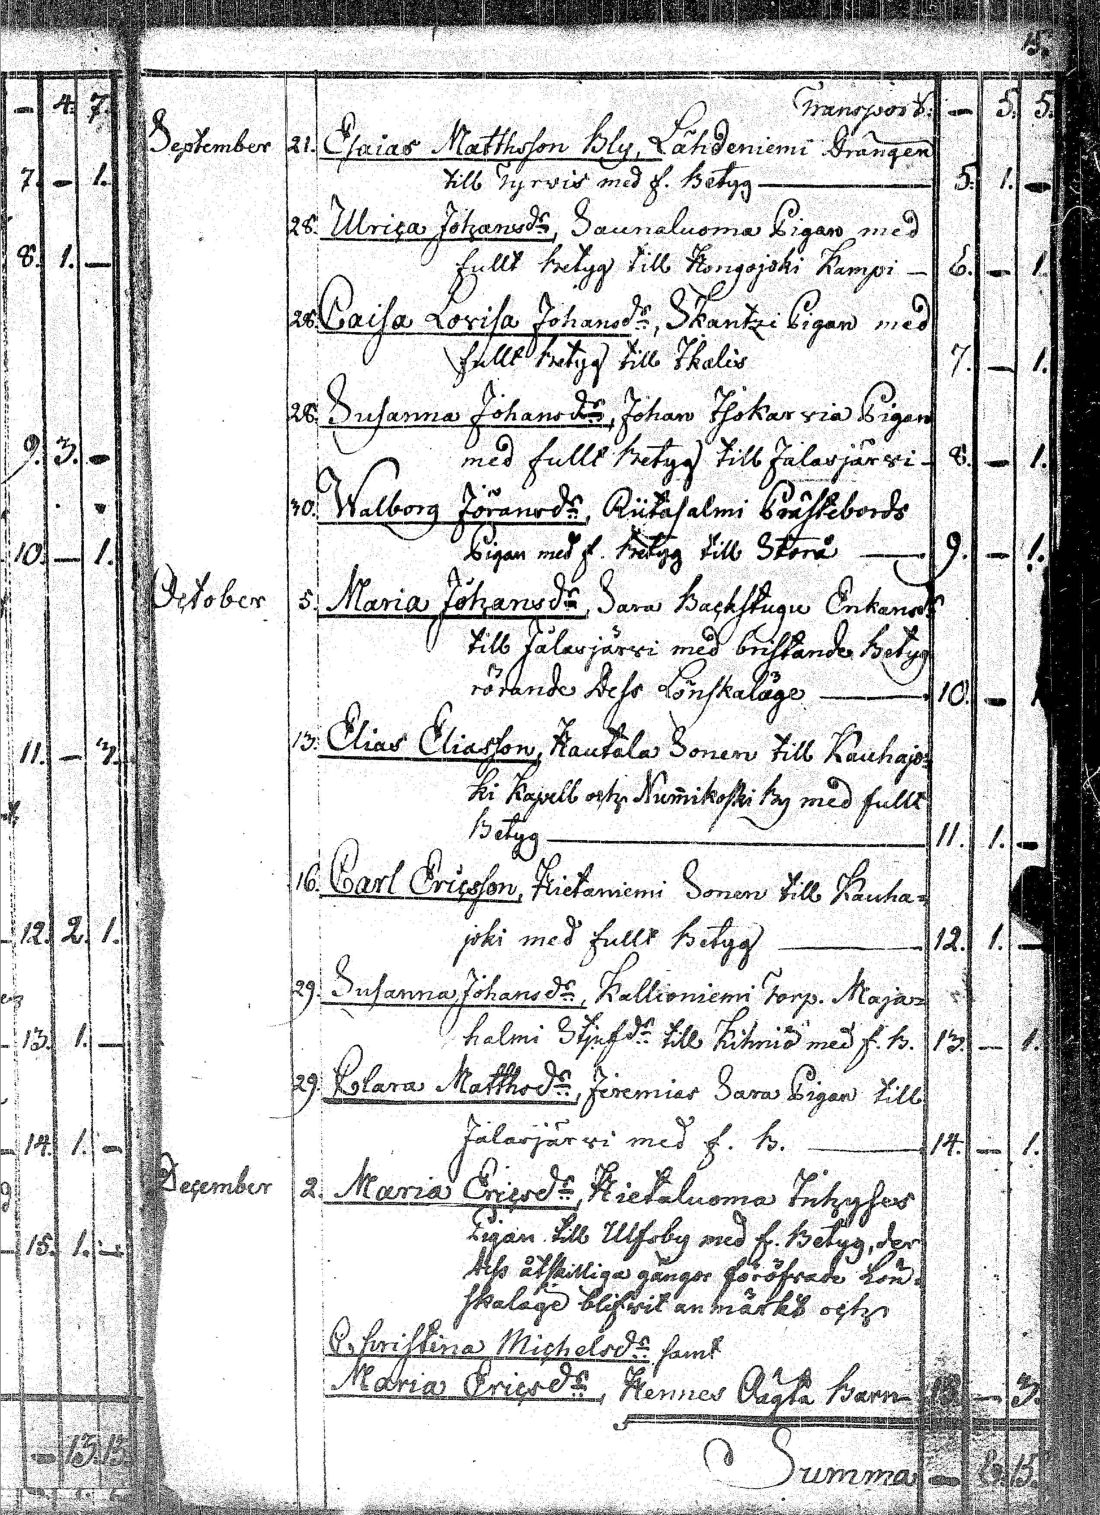 15.
Transport. — 5. 5.
September 21. Esaias Matthsson Bly, Lähdeniemi Drängen
till Tyrvis med f. Betyg — 5. 1. —
28. Ulrica Johansdr, Saunaluoma Pigan med
fullt Betyg till Hongojoki Kampi — 6. — 1.
28. Caisa Lovisa Johansdr, Skantzi Pigan med
fullt Betyg till Ikalis 7. — 1.
28. Susanna Johansdr, Johan Isokarvia Pigan
med fullt Betyg till Jalasjärvi — 8. — 1.
30. Walborg Jöransdr, Riitasalmi Prästebords
Pigan med f. Betyg till Storå — 9. — 1.
October 5. Maria Johansdr, Sara Backstugu Enkans dr
till Jalasjärvi med bristande Betyg
rörande Dess Lönskaläge — 10. —
13. Elias Eliasson, Hautala Sonen till Kauhajo-
ki Kapell och Num̄ikoski By med fullt
Betyg — 11. 1. —
16. Carl Ericsson, Hietaniemi Sonen till Kauha-
joki med fullt Betyg — 12. 1. —
29. Susanna Johansdr, Kallioniemi Torp. Maja-
halmi Stjufdr till Kihniö med f. B. 13. — 1.
29. Clara Matthsdr, Jeremias Sara Pigan till
Jalasjärvi med f. B. — 14. — 1.
December 2. Maria Ericsdr, Hietaluoma Inhyses
Pigan till Ulfsby med f. Betyg, der
dess åtskilliga gånger föröfvade Lön-
skaläge blifvit anmärkt och
Christina Michelsdr samt
Maria Ericsdr, Hennes Oägta Barn — 15. — 3.
Summa — 6. 15.
— 4. 7.
7. — 1.
8. 1. —
9. 3. —
10. — 1.
11. — 3.
12. 2. 1.
13. 1. —
14. 1. —
15. 1. —
— 13. 13.